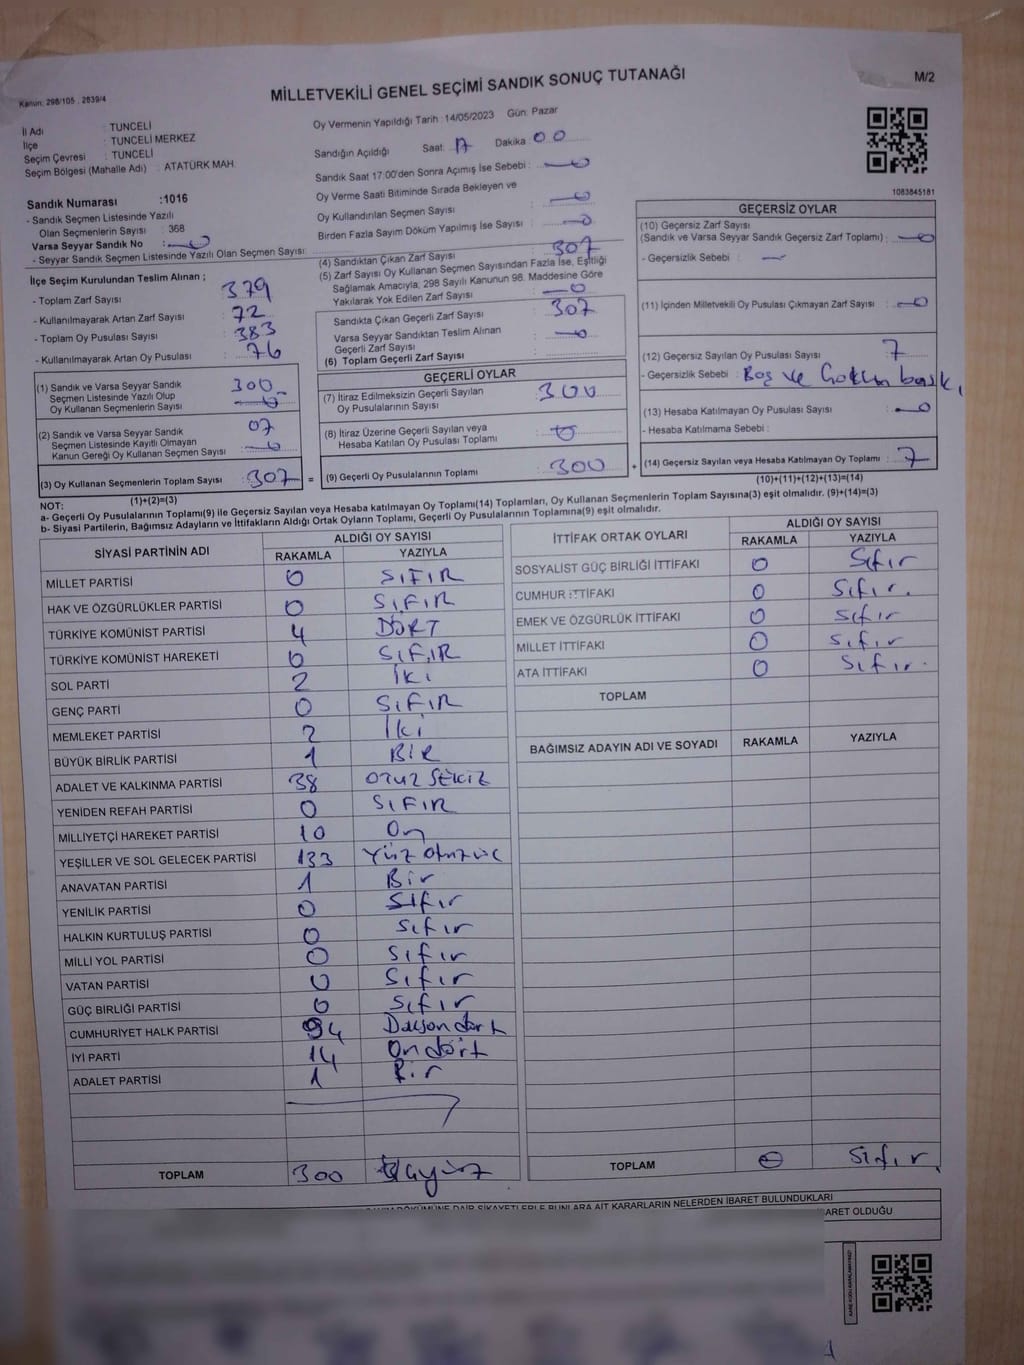 MİLLETVEKİLİ GENEL SEÇİMİ SANDIK SONUÇ TUTANAĞI
M/2
Kanun: 298/105 , 2839/4
İl Adı : TUNCELİ
İlçe : TUNCELİ MERKEZ
Seçim Çevresi : TUNCELİ
Seçim Bölgesi (Mahalle Adı) : ATATÜRK MAH.
Oy Vermenin Yapıldığı Tarih : 14/05/2023 Gün: Pazar
Sandığın Açıldığı Saat: 17 Dakika: 00
Sandık Saat 17:00'den Sonra Açımış İse Sebebi : —0
Oy Verme Saati Bitiminde Sırada Bekleyen ve
Oy Kullandırılan Seçmen Sayısı : —0
Birden Fazla Sayım Döküm Yapılmış İse Sayısı : —0
1083845181
Sandık Numarası :1016
- Sandık Seçmen Listesinde Yazılı
Olan Seçmenlerin Sayısı : 368
Varsa Seyyar Sandık No : —0
- Seyyar Sandık Seçmen Listesinde Yazılı Olan Seçmen Sayısı:
İlçe Seçim Kurulundan Teslim Alınan ;
- Toplam Zarf Sayısı : 379
- Kullanılmayarak Artan Zarf Sayısı : 72
- Toplam Oy Pusulası Sayısı : 383
- Kullanılmayarak Artan Oy Pusulası : 76
(1) Sandık ve Varsa Seyyar Sandık 300
Seçmen Listesinde Yazılı Olup
Oy Kullanan Seçmenlerin Sayısı —0
(2) Sandık ve Varsa Seyyar Sandık 07
Seçmen Listesinde Kayıtlı Olmayan
Kanun Gereği Oy Kullanan Seçmen Sayısı —0
(3) Oy Kullanan Seçmenlerin Toplam Sayısı : 307
(1)+(2)=(3)
(4) Sandıktan Çıkan Zarf Sayısı : 307
(5) Zarf Sayısı Oy Kullanan Seçmen Sayısından Fazla İse, Eşitliği
Sağlamak Amacıyla, 298 Sayılı Kanunun 98. Maddesine Göre
Yakılarak Yok Edilen Zarf Sayısı : —0
Sandıkta Çıkan Geçerli Zarf Sayısı : 307
Varsa Seyyar Sandıktan Teslim Alınan
Geçerli Zarf Sayısı : —0
(6) Toplam Geçerli Zarf Sayısı
GEÇERLİ OYLAR
(7) İtiraz Edilmeksizin Geçerli Sayılan
Oy Pusulalarının Sayısı : 300
(8) İtiraz Üzerine Geçerli Sayılan veya
Hesaba Katılan Oy Pusulası Toplamı : 0
= (9) Geçerli Oy Pusulalarının Toplamı 300 +
GEÇERSİZ OYLAR
(10) Geçersiz Zarf Sayısı
(Sandık ve Varsa Seyyar Sandık Geçersiz Zarf Toplamı) : —0
- Geçersizlik Sebebi : —
(11) İçinden Milletvekili Oy Pusulası Çıkmayan Zarf Sayısı : —0
(12) Geçersiz Sayılan Oy Pusulası Sayısı : 7
- Geçersizlik Sebebi : Boş ve
(13) Hesaba Katılmayan Oy Pusulası Sayısı : —0
- Hesaba Katılmama Sebebi :
(14) Geçersiz Sayılan veya Hesaba Katılmayan Oy Toplamı : 7
(10)+(11)+(12)+(13)=(14)
NOT:
a- Geçerli Oy Pusulalarının Toplamı(9) ile Geçersiz Sayılan veya Hesaba katılmayan Oy Toplamı(14) Toplamları, Oy Kullanan Seçmenlerin Toplam Sayısına(3) eşit olmalıdır. (9)+(14)=(3)
b- Siyasi Partilerin, Bağımsız Adayların ve İttifakların Aldığı Ortak Oyların Toplamı, Geçerli Oy Pusulalarının Toplamına(9) eşit olmalıdır.
SİYASİ PARTİNİN ADI ALDIĞI OY SAYISI
RAKAMLA YAZIYLA
MİLLET PARTİSİ 0 SIFIR
HAK VE ÖZGÜRLÜKLER PARTİSİ 0 SIFIR
TÜRKİYE KOMÜNİST PARTİSİ 4 DÖRT
TÜRKİYE KOMÜNİST HAREKETİ 0 SIFIR
SOL PARTİ 2 İki
GENÇ PARTİ 0 SIFIR
MEMLEKET PARTİSİ 2 İki
BÜYÜK BİRLİK PARTİSİ 1 BİR
ADALET VE KALKINMA PARTİSİ 38 OTUZ SEKİZ
YENİDEN REFAH PARTİSİ 0 SIFIR
MİLLİYETÇİ HAREKET PARTİSİ 10 On
YEŞİLLER VE SOL GELECEK PARTİSİ 133 Yüz otuz üç
ANAVATAN PARTİSİ 1 Bir
YENİLİK PARTİSİ 0 Sıfır
HALKIN KURTULUŞ PARTİSİ 0 Sıfır
MİLLİ YOL PARTİSİ 0 Sıfır
VATAN PARTİSİ 0 Sıfır
GÜÇ BİRLİĞİ PARTİSİ 0 Sıfır
CUMHURİYET HALK PARTİSİ 94 Doksan dört
İYİ PARTİ 14 On dört
ADALET PARTİSİ 1 Bir
TOPLAM 300 Üçyüz
İTTİFAK ORTAK OYLARI ALDIĞI OY SAYISI
RAKAMLA YAZIYLA
SOSYALİST GÜÇ BİRLİĞİ İTTİFAKI 0 Sıfır
CUMHUR İTTİFAKI 0 Sıfır.
EMEK VE ÖZGÜRLÜK İTTİFAKI 0 Sıfır
MİLLET İTTİFAKI 0 Sıfır
ATA İTTİFAKI 0 Sıfır.
TOPLAM
BAĞIMSIZ ADAYIN ADI VE SOYADI RAKAMLA YAZIYLA
TOPLAM 0 Sıfır.
DÖKÜMÜNE DAİR ŞİKAYETLERLE BUNLARA AİT KARARLARIN NELERDEN İBARET BULUNDUKLARI
BARET OLDUĞU